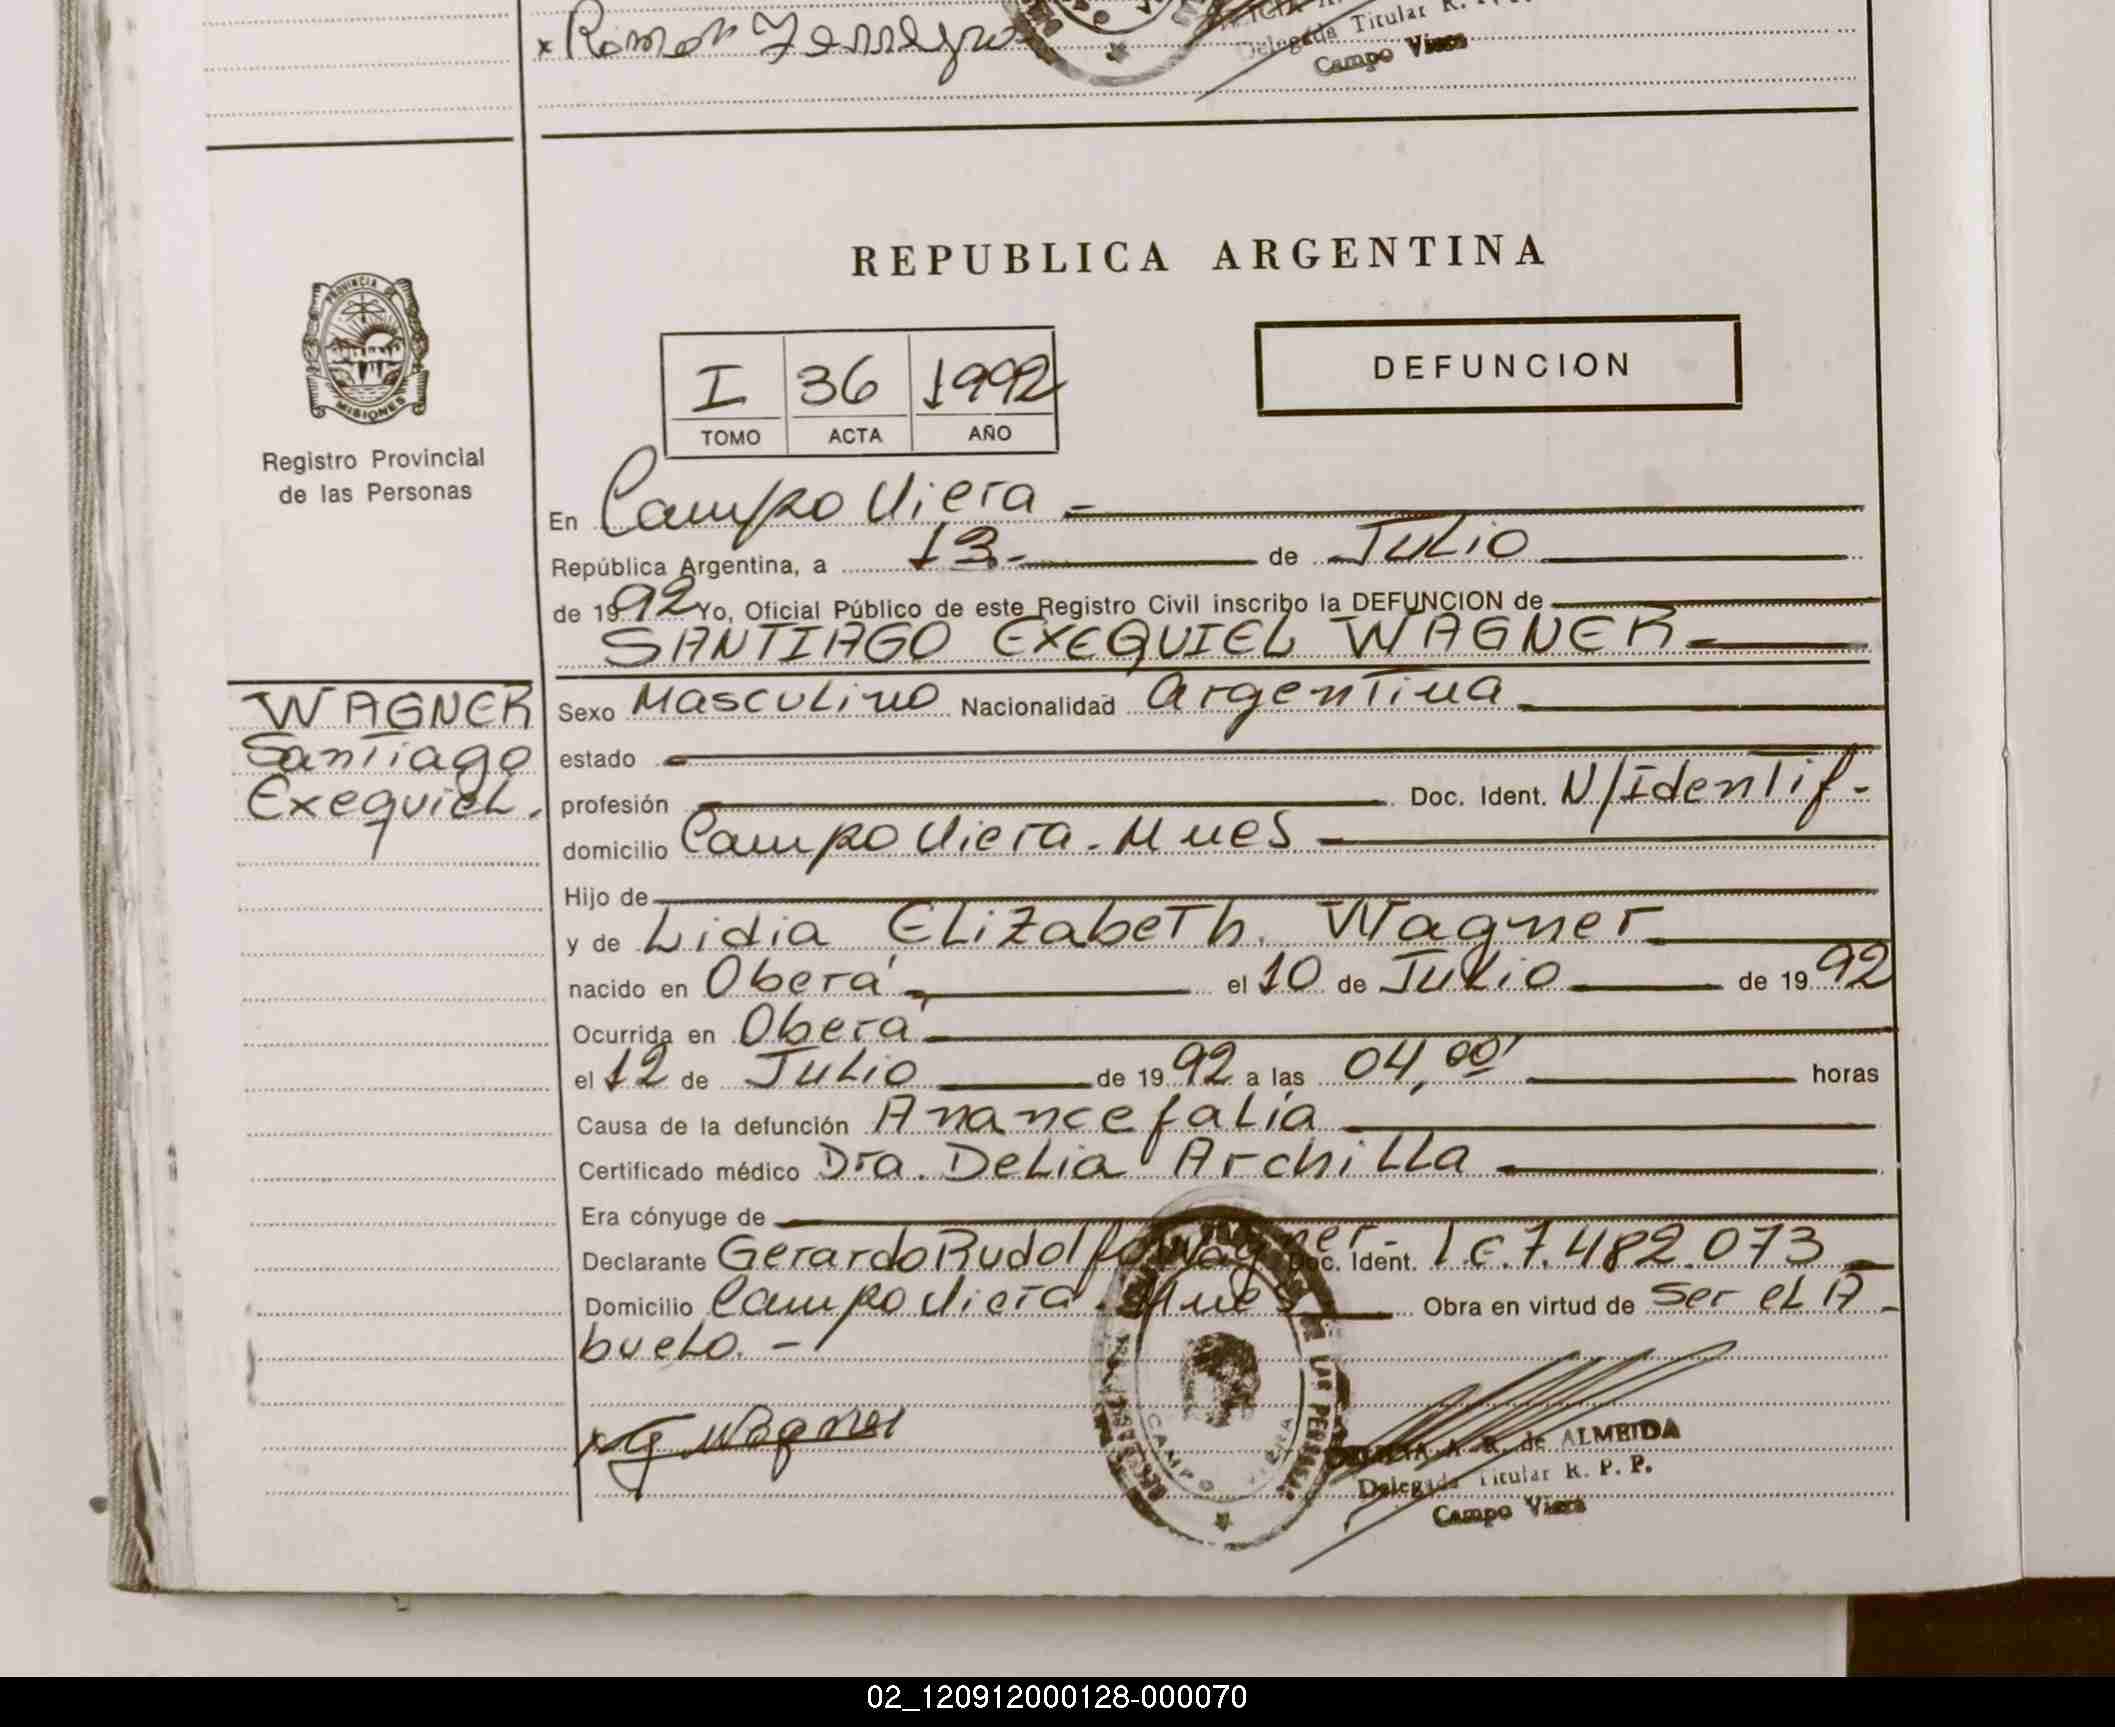 x Ramon Ferreyro
Delegada Titular R.
Campo Viera
PROVINCIA DE
MISIONES
Registro Provincial
de las Personas
REPUBLICA ARGENTINA
I 36 1992
TOMO ACTA AÑO
DEFUNCION
En Campo Viera -
República Argentina, a 13- de Julio
de 1992 Yo, Oficial Público de este Registro Civil inscribo la DEFUNCION de
SANTIAGO EXEQUIEL WAGNER-
WAGNER
Santiago
Exequiel.
Sexo Masculino Nacionalidad Argentina
estado
profesión Doc. Ident. N/Identif-
domicilio Campo Viera. Mnes -
Hijo de
y de Lidia Elizabeth Wagner
nacido en Oberá el 10 de Julio de 1992
Ocurrida en Oberá
el 12 de Julio de 1992 a las 04,00' horas
Causa de la defunción Anancefalía
Certificado médico Dra. Delia Archilla
Era cónyuge de
Declarante Gerardo Rudolfo Wagner- Doc. Ident. L.E. 7.482.073
Domicilio Campo Viera. Mnes Obra en virtud de ser el A-
buelo. -
x G Wagner
LAS PERSONAS
CAMPO VIERA
A. R. de ALMEIDA
Delegada Titular R. P. P.
Campo Viera
02_120912000128-000070